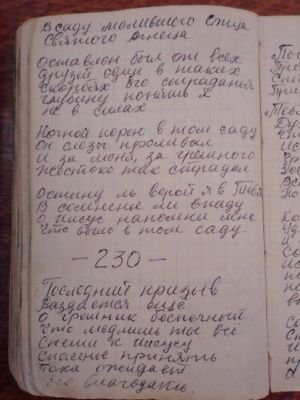 В саду молившего Отца
Святого Агнеца
Оставлен был он всех
друзей один в таких
скорбях Его страданий
глубину понять я
не в силах
Ночной порою в том саду
Он слезы проливал
и за меня, за грешного
жестоко так страдал
Остыну ль верой я в Тебя
В сомнение ли впаду
О Иисус напомни мне
Что было в том саду.
— 230 —
Последний призыв
Раздается еще
О грешник беспечный
что медлишь ты всё
Спеши к Иисусу
Спасенье принять
Пока ожидает
Его благодать.